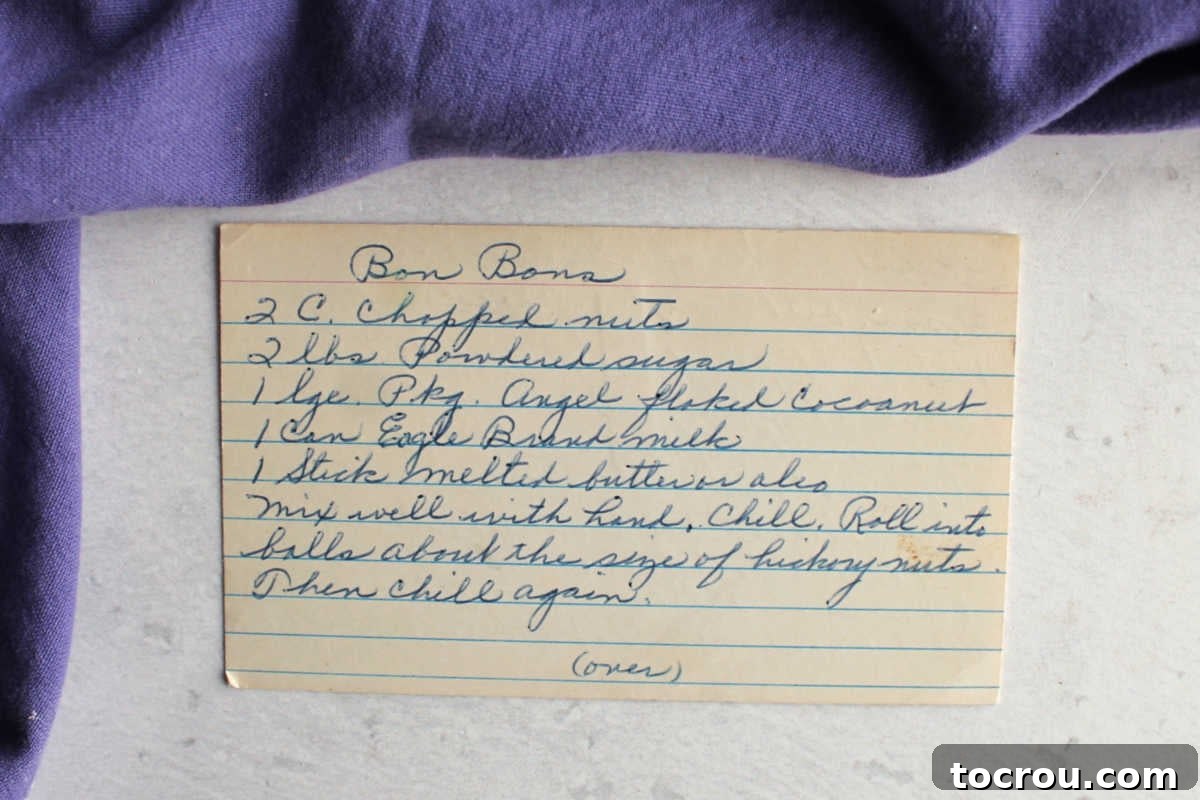 Bon Bons
2 C. Chopped nuts
2 lbs Powdered sugar
1 lge. Pkg. Angel flaked Cocoanut
1 Can Eagle Brand milk
1 Stick melted butter or oleo
Mix well with hand. Chill. Roll into
balls about the size of hickory nuts.
Then chill again.
(over)
tocrou.com